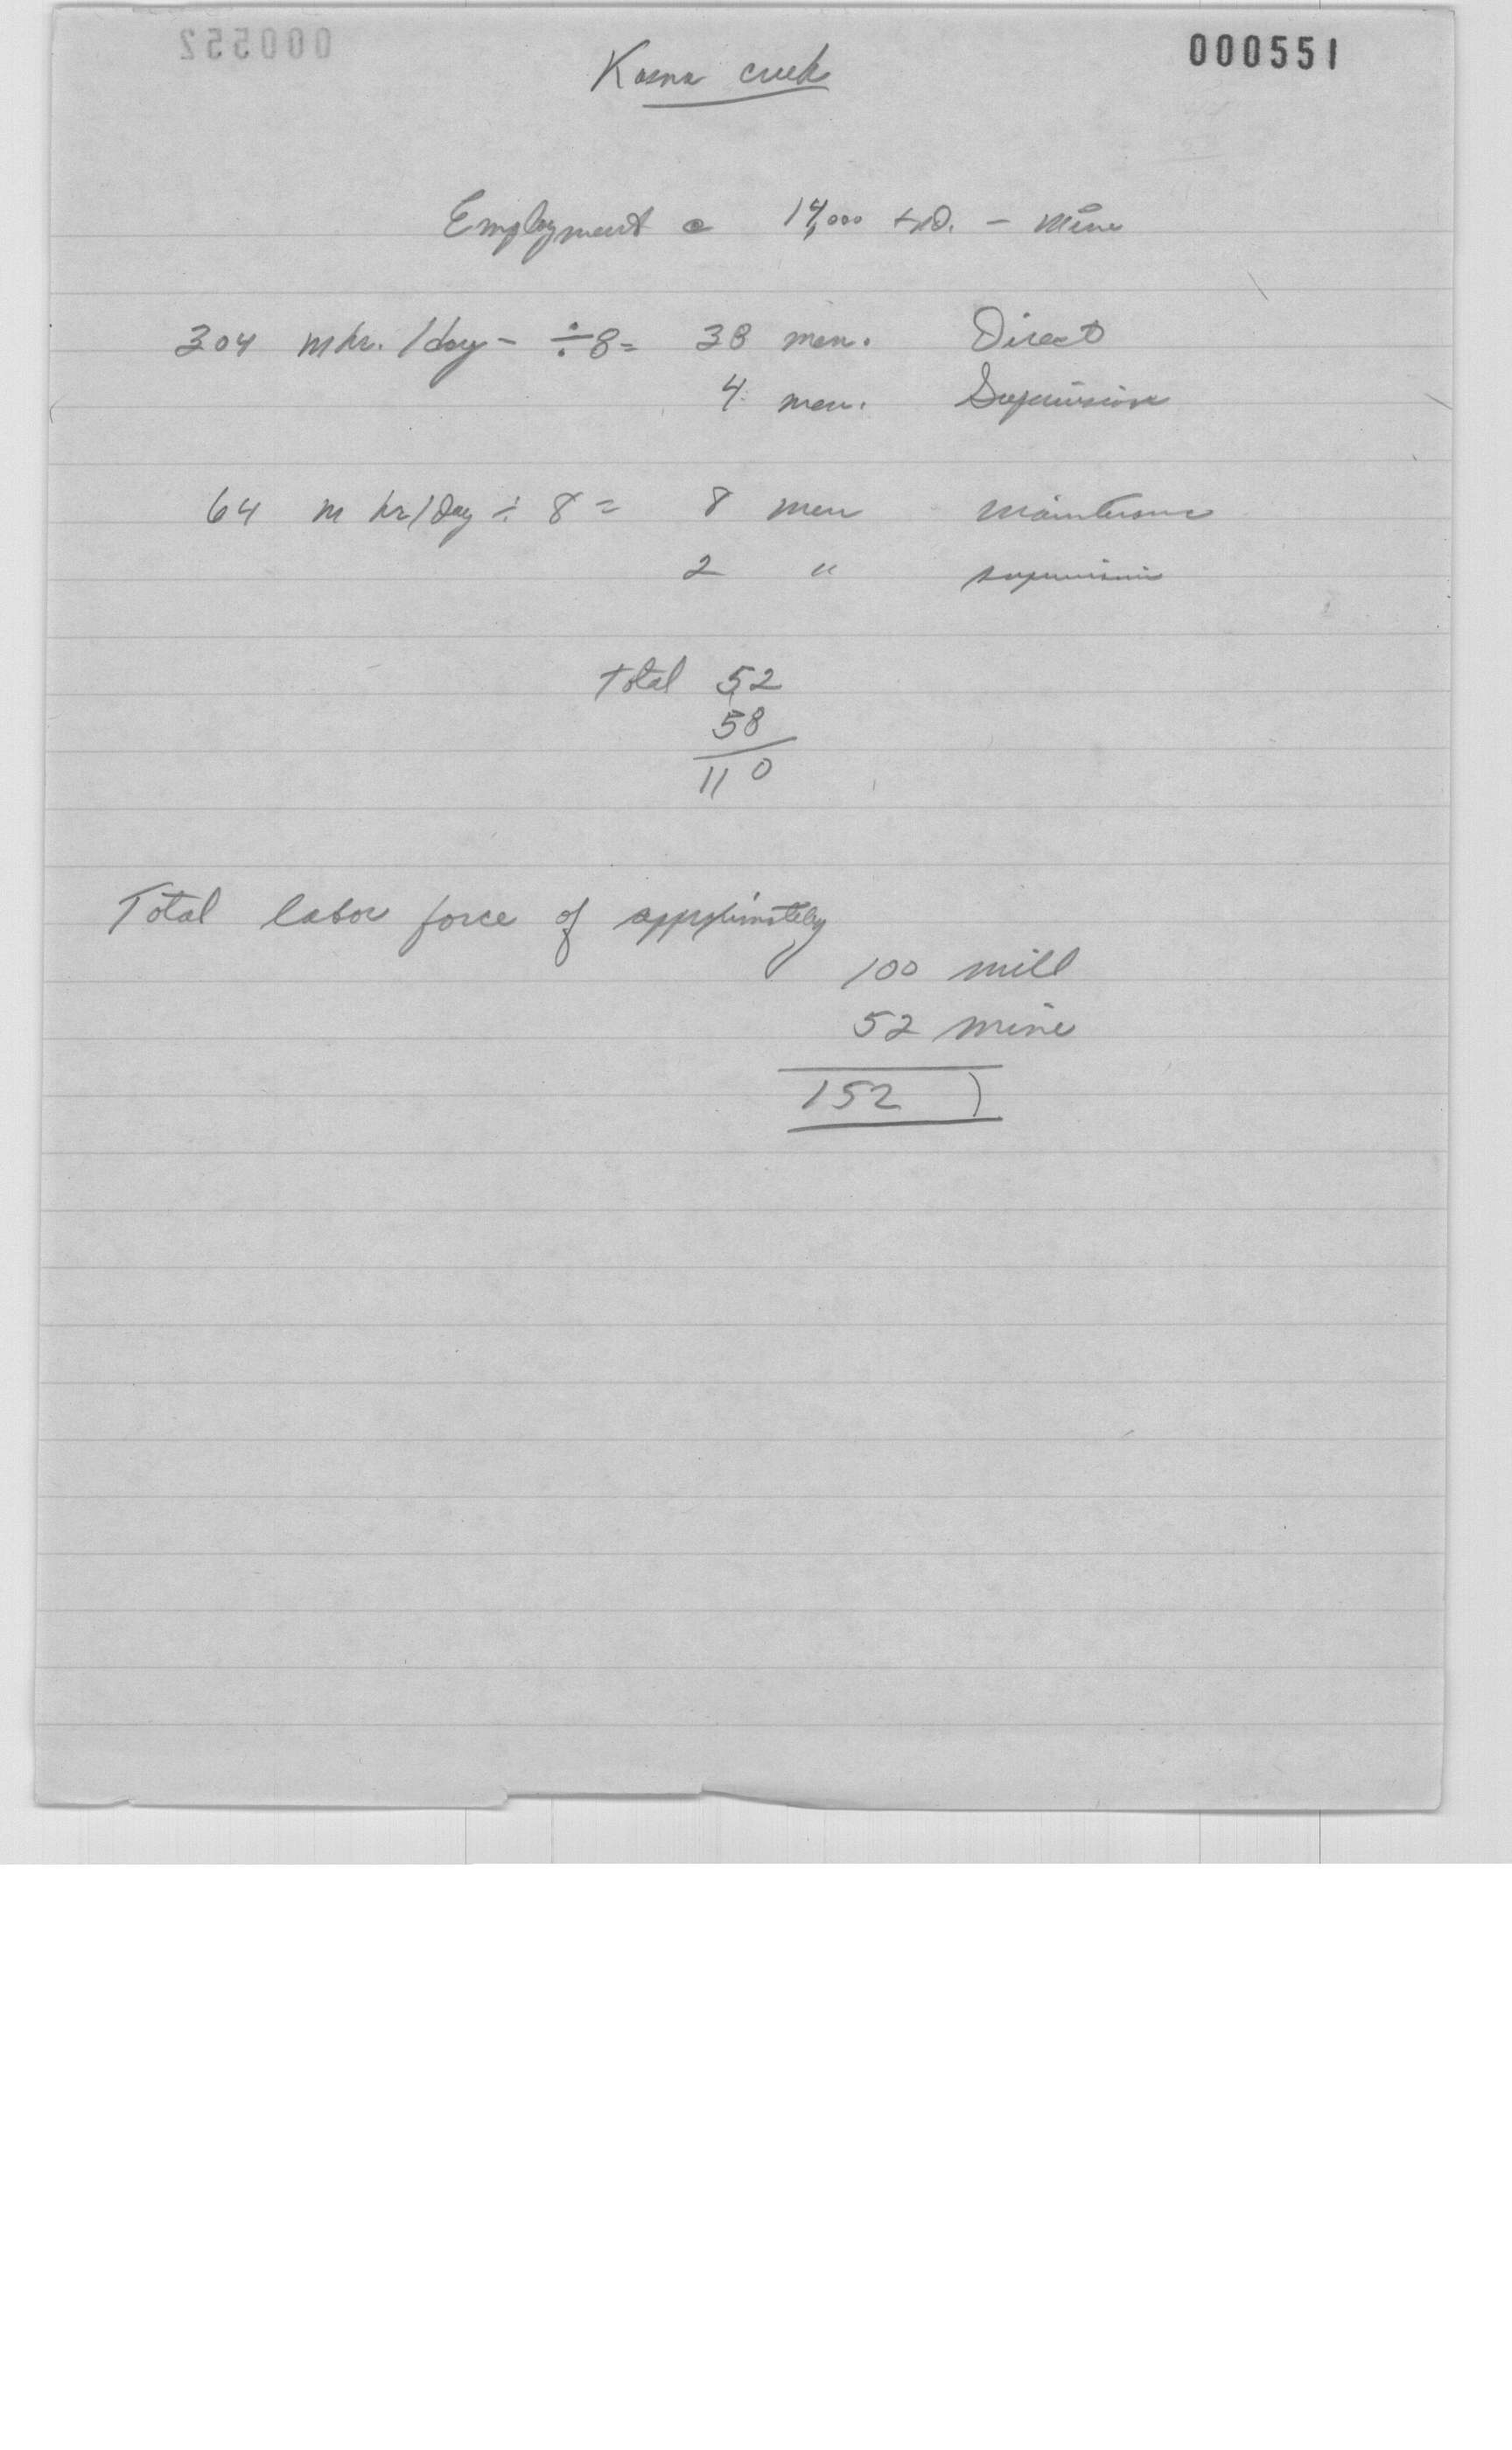 000552
000551
Kasna creek
Employment @ 14,000 t.p.D. - mine
304 mhr. /day - ÷ 8 = 38 men. Direct
4 men. Supervision
64 m hr/day ÷ 8 = 8 men maintenance
2 " supervision
Total 52
58
110
Total labor force of approximately
100 mill
52 mine
152 )